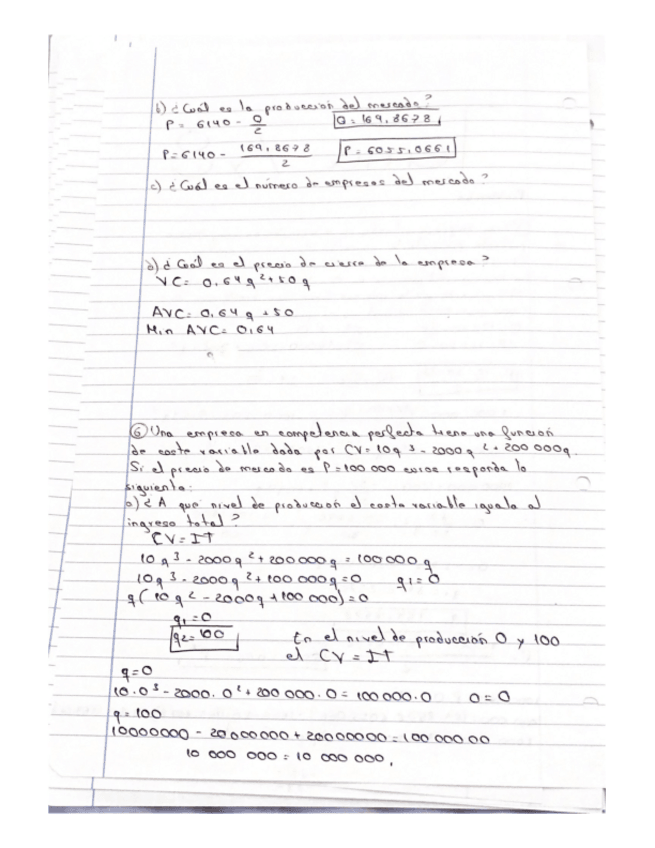 b) ¿Cuál es la producción del mercado?
P = 6140 - Q/2 Q = 169,8678
P = 6140 - 169,8678/2 P = 6055,0661
c) ¿Cuál es el número de empresas del mercado?
d) ¿Cuál es el precio de cierre de la empresa?
VC = 0,64q² + 50q
AVC = 0,64q + 50
Min AVC = 0,64
⑥ Una empresa en competencia perfecta tiene una función
de coste variable dada por CV = 10q³ - 2000q² + 200 000q.
Si el precio de mercado es P = 100 000 euros responda lo
siguiente:
a) ¿A qué nivel de producción el coste variable iguala al
ingreso total?
CV = IT
10q³ - 2000q² + 200000q = 100000q
10q³ - 2000q² + 100 000q = 0 q₁ = 0
q(10q² - 2000q + 100 000) = 0
q₁ = 0
q₂ = 100 En el nivel de producción 0 y 100
el CV = IT
q = 0
10·0³ - 2000·0² + 200 000·0 = 100 000·0 0 = 0
q = 100
10000000 - 20000000 + 20000000 = 100 000 00
10 000 000 = 10 000 000,